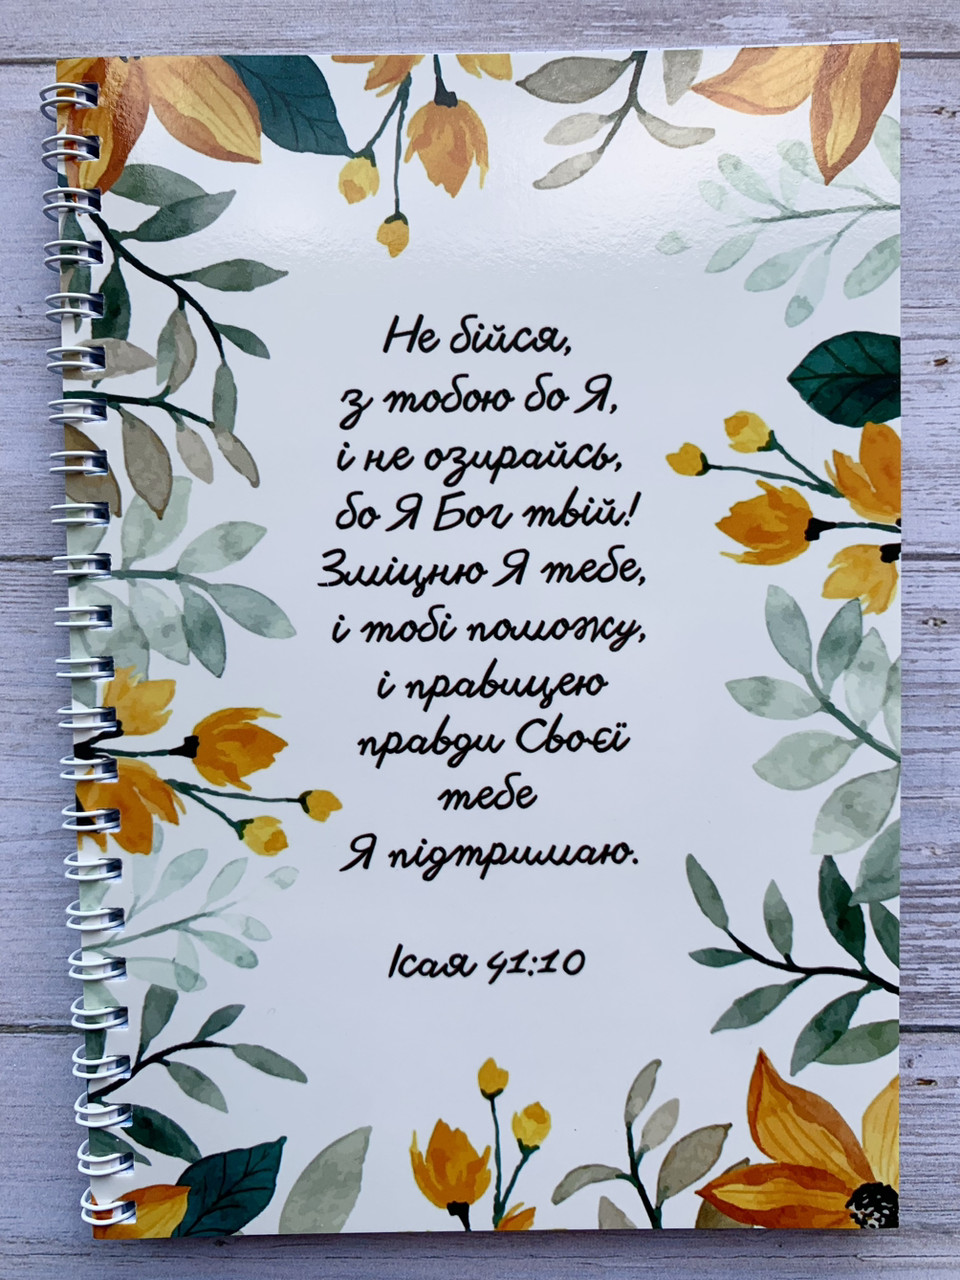 Не бійся,
з тобою бо Я,
і не озирайсь,
бо Я Бог твій!
Зміцню Я тебе,
і тобі поможу,
і правицею
правди Своєї
тебе
Я підтримаю.
Ісая 41:10